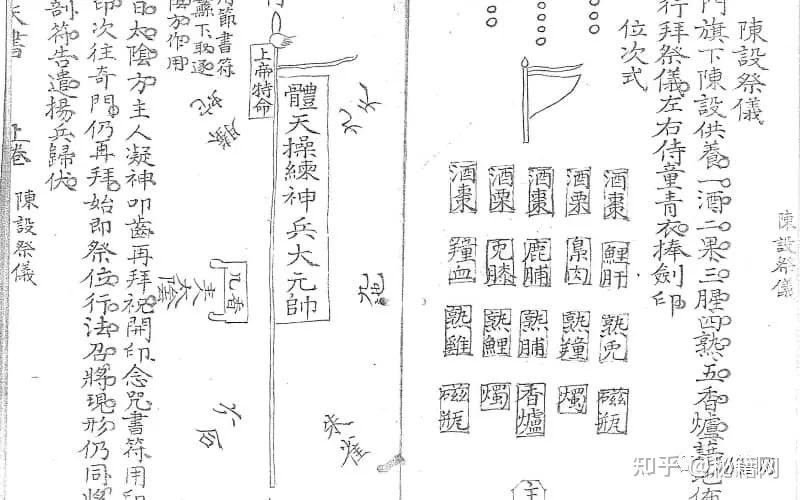 陳設祭儀
陳設祭儀
門旗下陳設供養一酒二果三腥四熟五香爐
行拜祭儀左右侍童青衣捧劍印
位次式
酒棗 酒栗 酒棗 酒栗 酒棗
羶血 兎膝 鹿脯 鯉肝
熟雞 熟鯉 熟脯 熟羶 熟兎
磁瓶 燭 香爐 燭 磁瓶
九天
九地
朱雀
體天操練神兵大元帥
上帝特命
太陰
六合
用節書符
陰方作用
日太陰方主人凝神叩齒再拜祝開印念咒書符用印
印次往奇門仍再拜始即祭位行法召將現形仍同將
剖符告遣揚兵歸伏
天書 上卷 陳設祭儀
知乎 @秘籍网